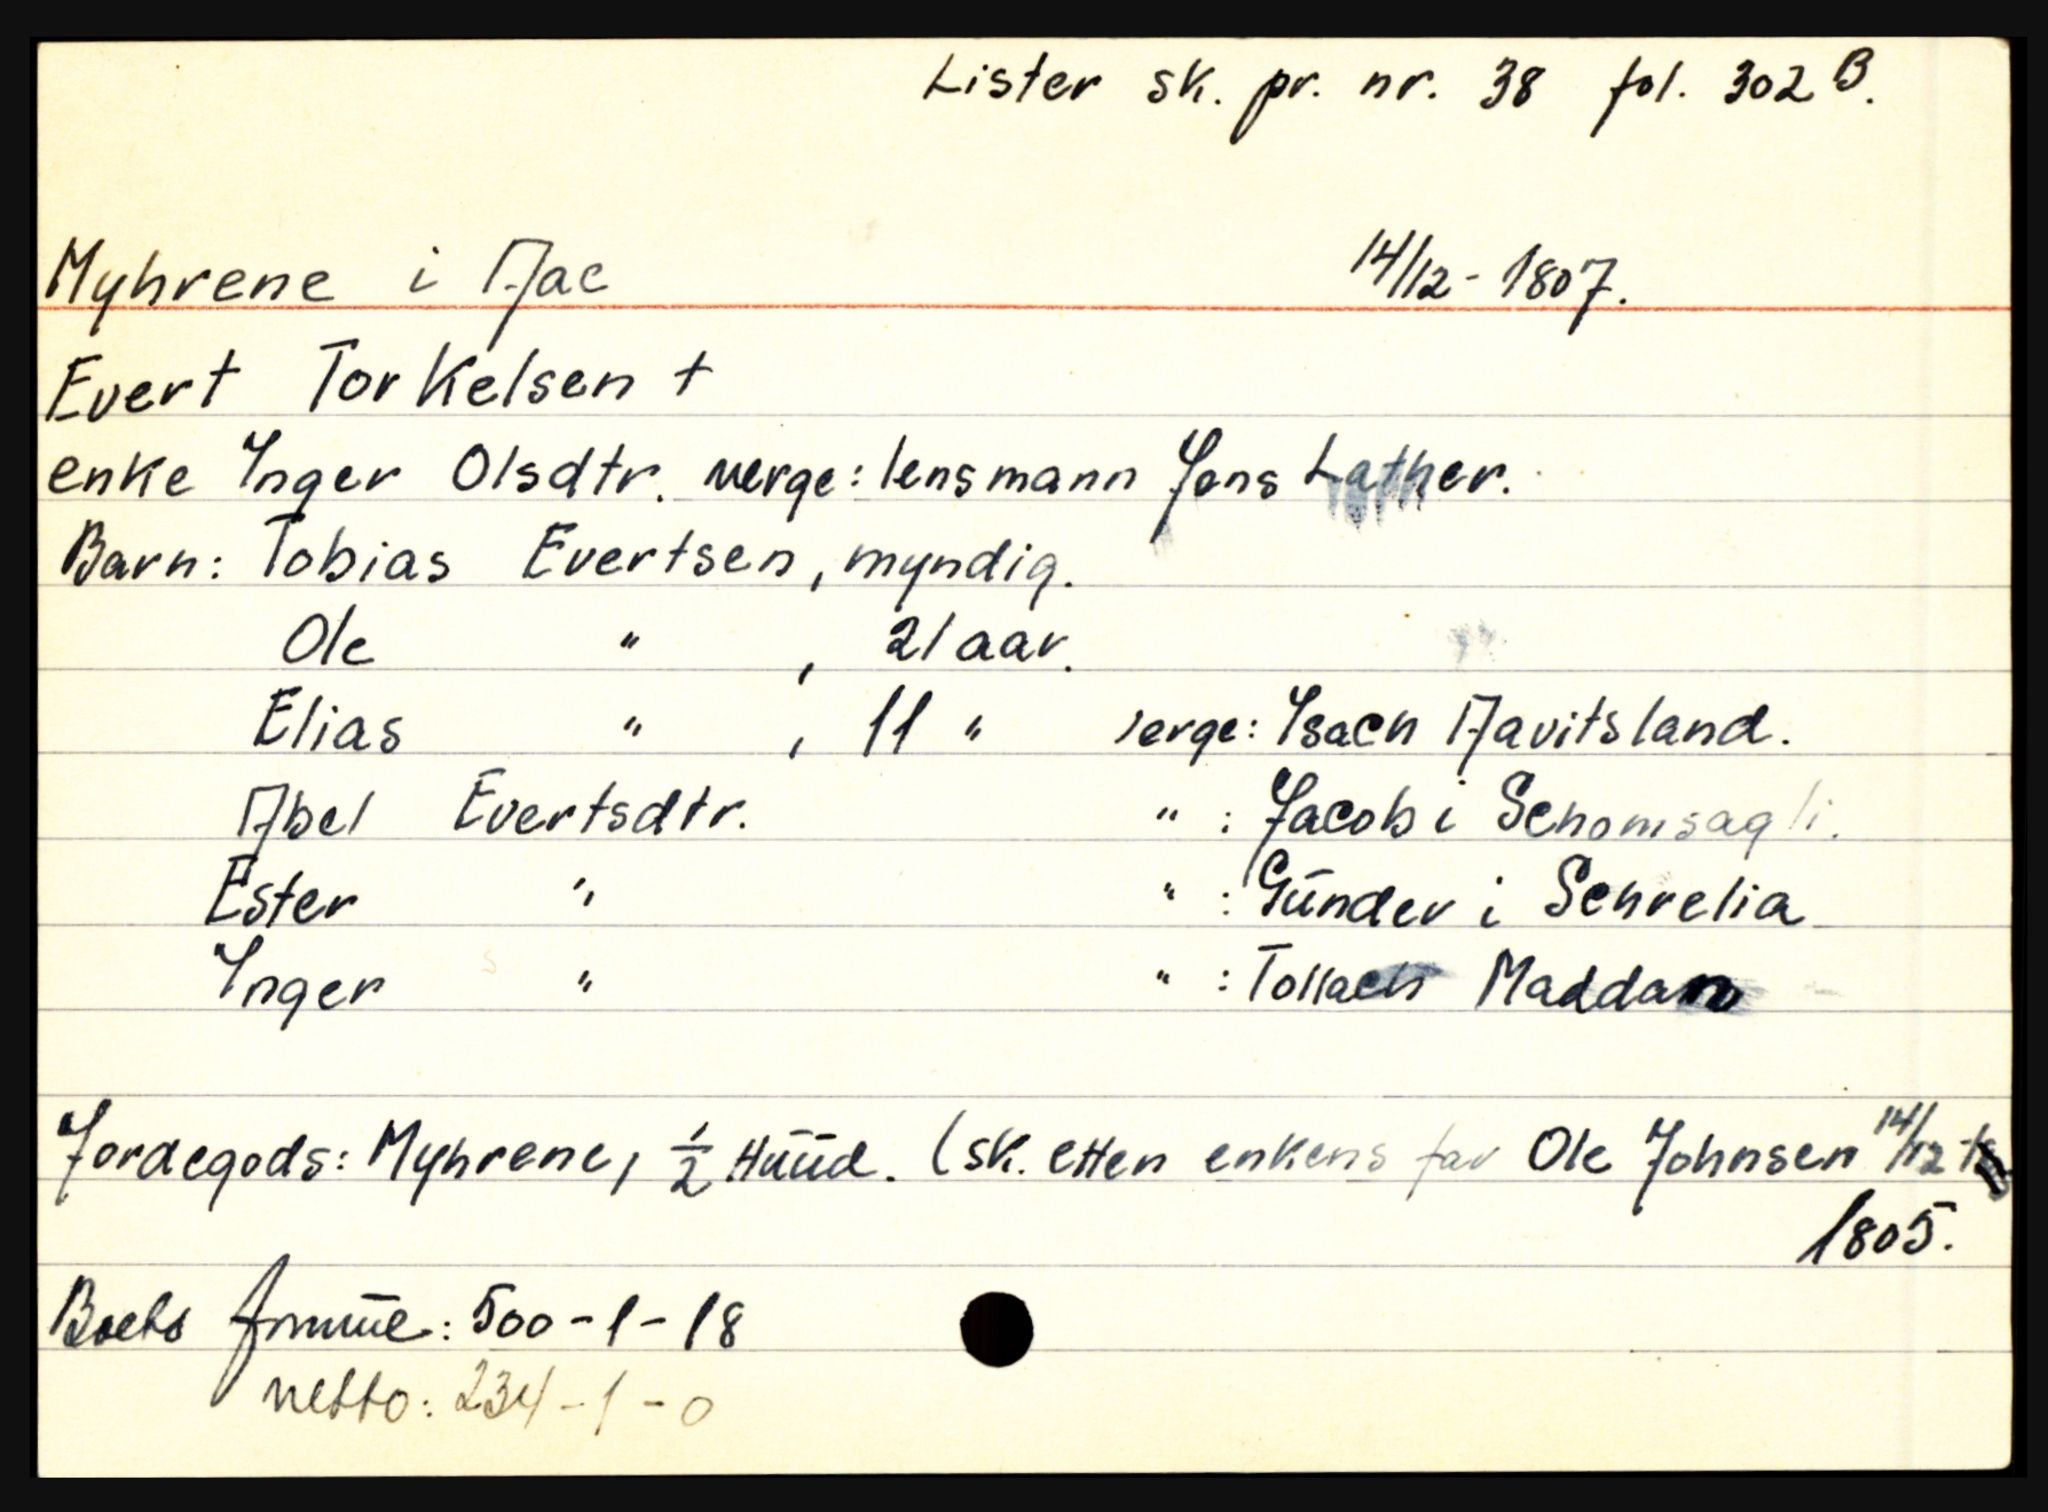 Lister sk. pr. nr. 38 fol. 302 B.
Myhrene i Aae 14/12 - 1807.
Evert Torkelsen +
enke Inger Olsdtr. verge: lensmann Jens Lather.
Barn: Tobias Evertsen, myndig.
Ole " , 21 aar.
Elias " , 11 " verge: Isach Aavitsland.
Abel Evertsdtr. " : Jacob i Schomsagli.
Ester " " : Günder i Schrelia
Inger " " : Tollach Maddan
Jordegods: Myhrene, 1/2 Hüüd. (sk. etter enkens far Ole Johnsen 14/12
1805.
Boets 500 - 1 - 18
netto: 234 - 1 - 0